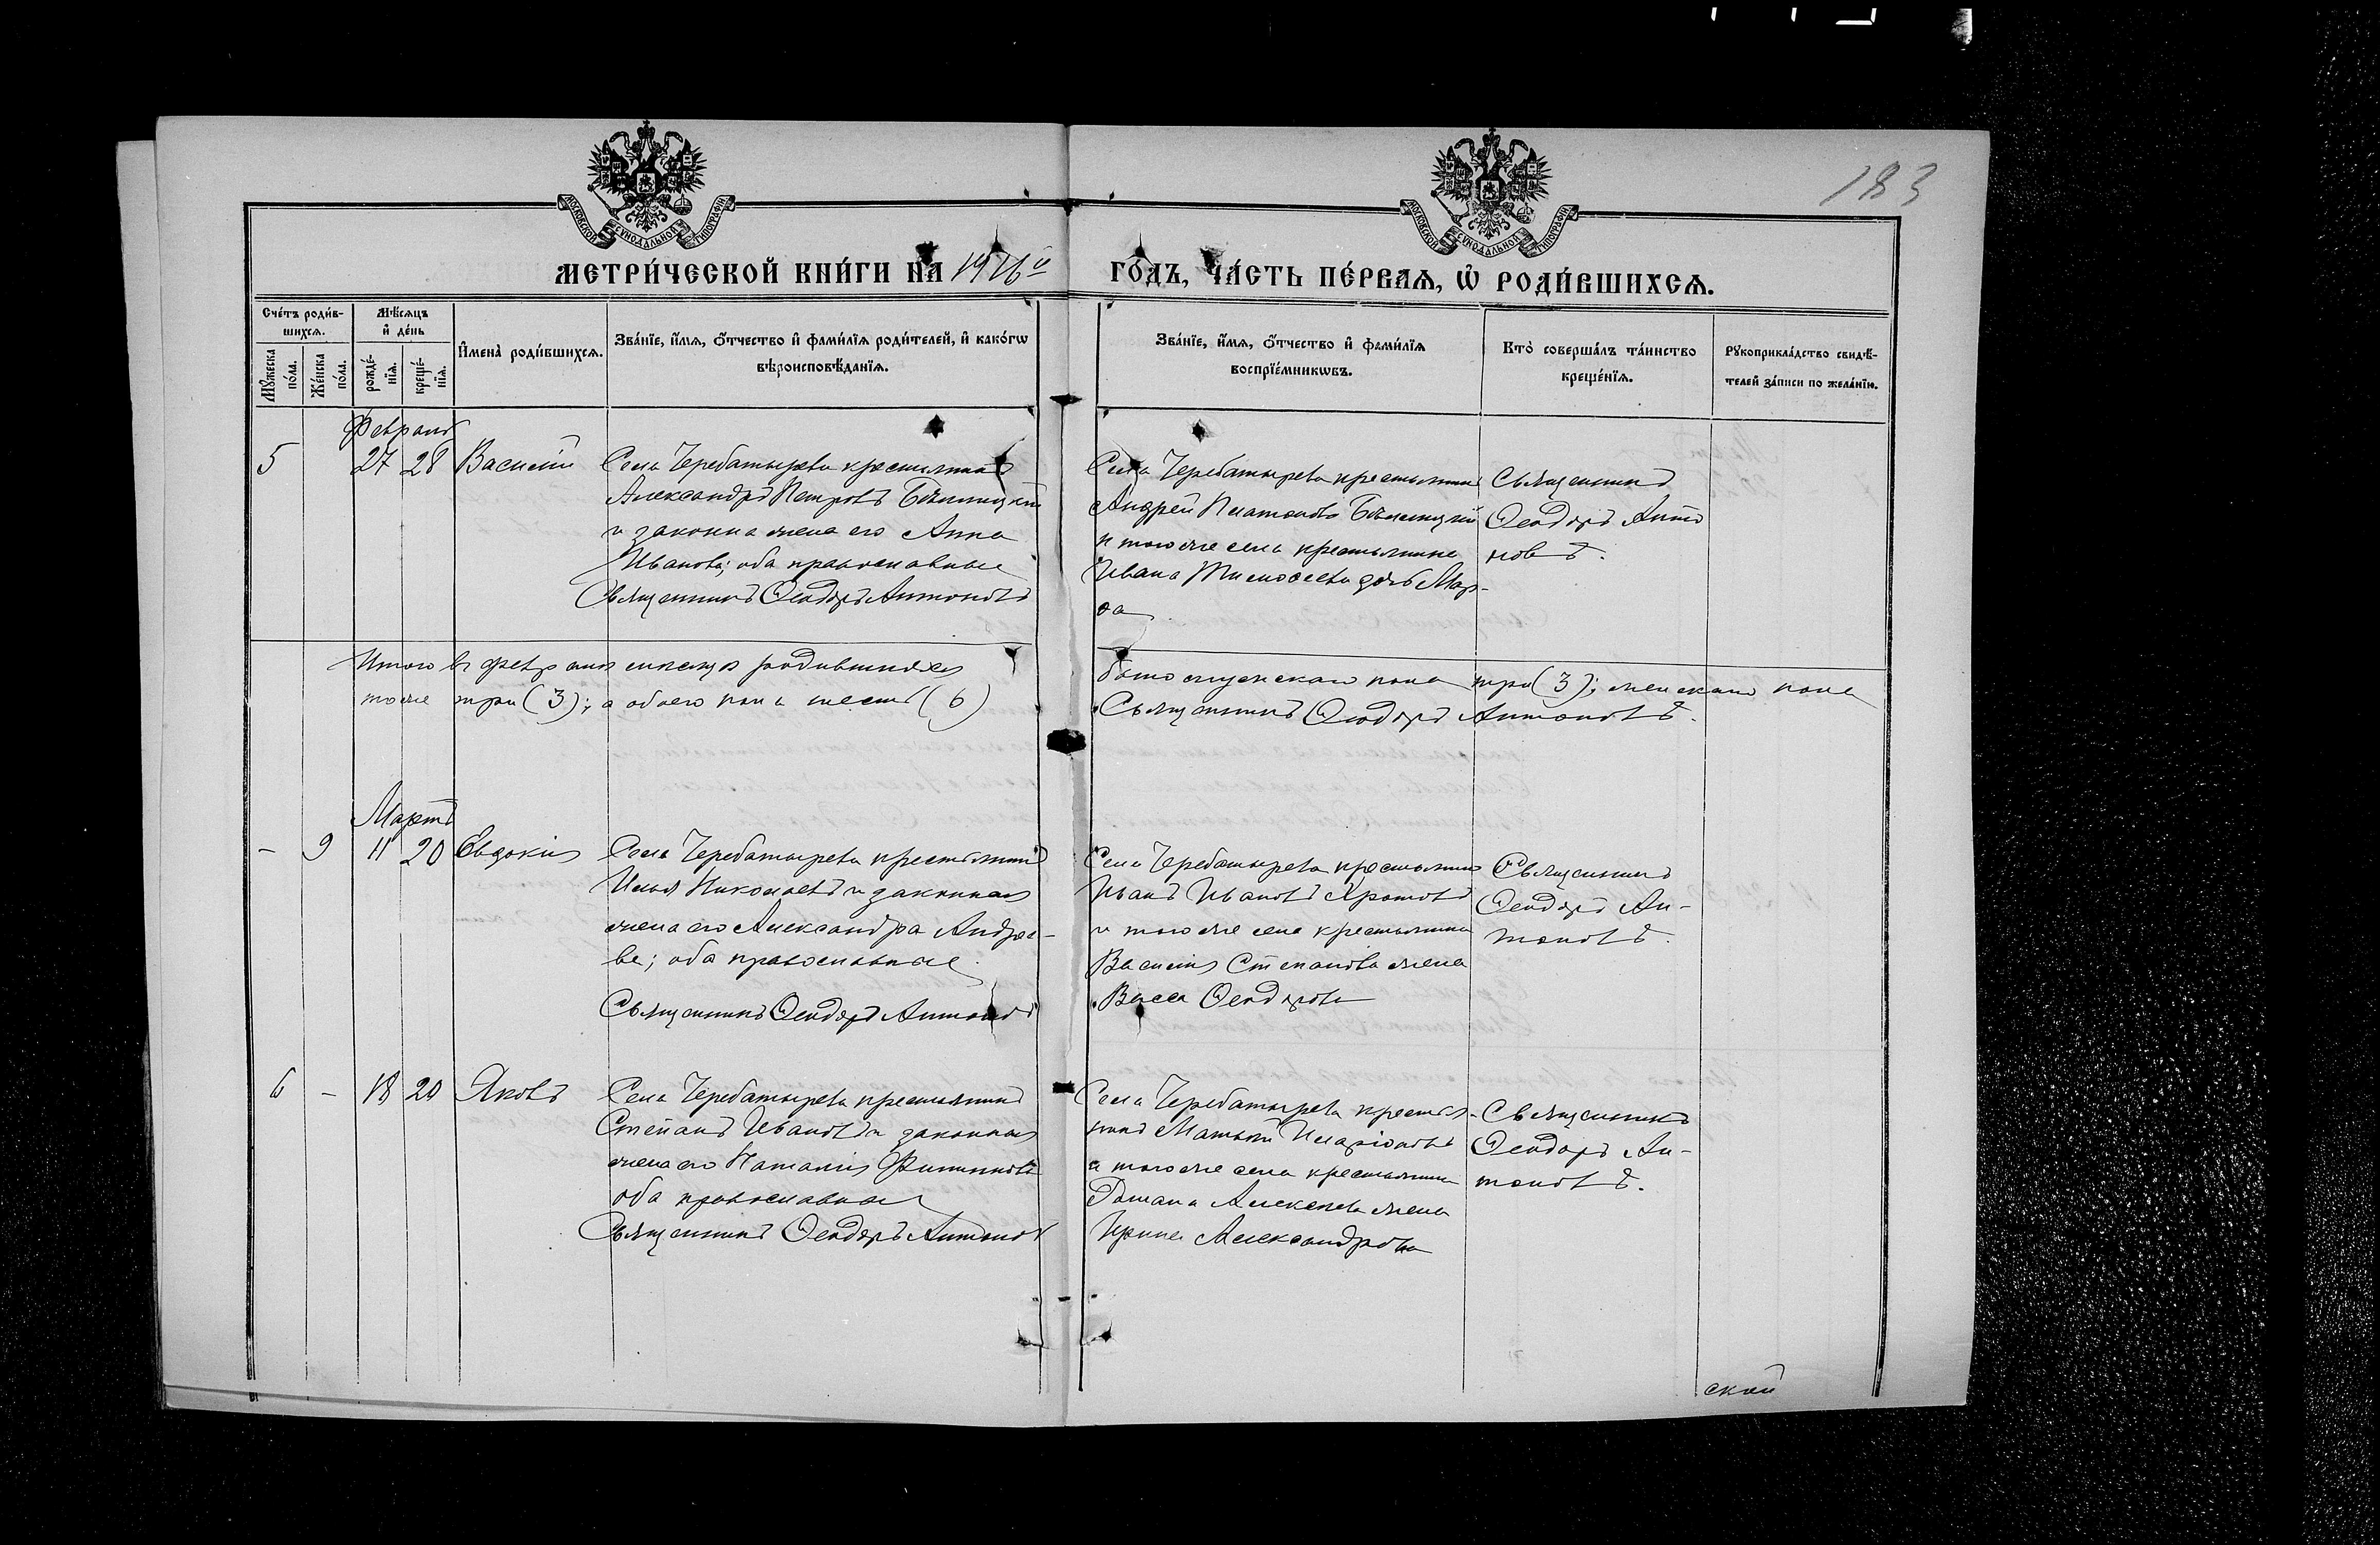 183
МОСКОВСКОЙ СѴНОДАЛЬНОЙ ТИПОГРАФІИ
МОСКОВСКОЙ СѴНОДАЛЬНОЙ ТИПОГРАФІИ
МЕТРИ́ЧЕСКОЙ КНИ́ГИ НА 1916й ГО́ДЪ, ЧА́СТЬ ПЕ́РВАЯ, Ѡ РОДИ́ВШИХСѦ.
Сче́тъ роди́в-
шихся.
Мѣ́сяцъ
и де́нь
Мꙋ́жеска
по́ла.
Же́нска
по́ла.
рожде́-
нїя.
креще́-
нїя.
И҆мена̀ роди́вшихся.
Зва́нїе, и҆́мя, ѻ҆́тчество и҆ фами́лїя роди́телей, и҆ како́гѡ
вѣроисповѣ́данїя.
Зва́нїе, и҆́мя, ѻ҆́тчество и҆ фами́лїя
воспрїе́мникѡвъ.
Кто̀ соверша́лъ та́инство
креще́нїя.
Рꙋкоприкла́дство свидѣ́-
телей за́писи по жела́нїю.
Февраль
5 27 28 Василій Села Черебатырева крестьянинъ
Александръ Петровъ
и законна жена его Анна
Иванова; оба православные
Священникъ Ѳеодоръ Антоновъ
Села Черебатырева крестьянинъ
Андрей Платоновъ
и того же села крестьянина
Ивана Тимоѳеева дочь Мар-
ѳа
Священникъ
Ѳеодоръ Анто
новъ.
Итого въ феврале месяце родившихся было мужескаго пола три (3); женскаго пола
тоже три (3); а обоего пола шесть (6) Священникъ Ѳеодоръ Антоновъ.
Мартъ
- 9 11 20 Евдокія Села Черебатырева крестьянинъ
Илья Николаевъ и законная
жена его Александра Андрее-
ва; оба православные.
Священникъ Ѳеодоръ Антоновъ
Села Черебатырева крестьянинъ
Иванъ Ивановъ Кротовъ
и того же села крестьянина
Василія Степанова жена
Васса Ѳеодорова
Священникъ
Ѳеодоръ Ан-
тоновъ.
6 - 18 20 Яковъ Села Черебатырева крестьянинъ
Степанъ Ивановъ и законная
жена его Наталія Филиппова
оба православные
Священникъ Ѳеодоръ Антоновъ
Села Черебатырева крестья-
нинъ Матвей Иларіоновъ
и того же села крестьянина
Романа Алексеева жена
Ирина Александрова
Священникъ
Ѳеодоръ Ан-
тоновъ.
ской